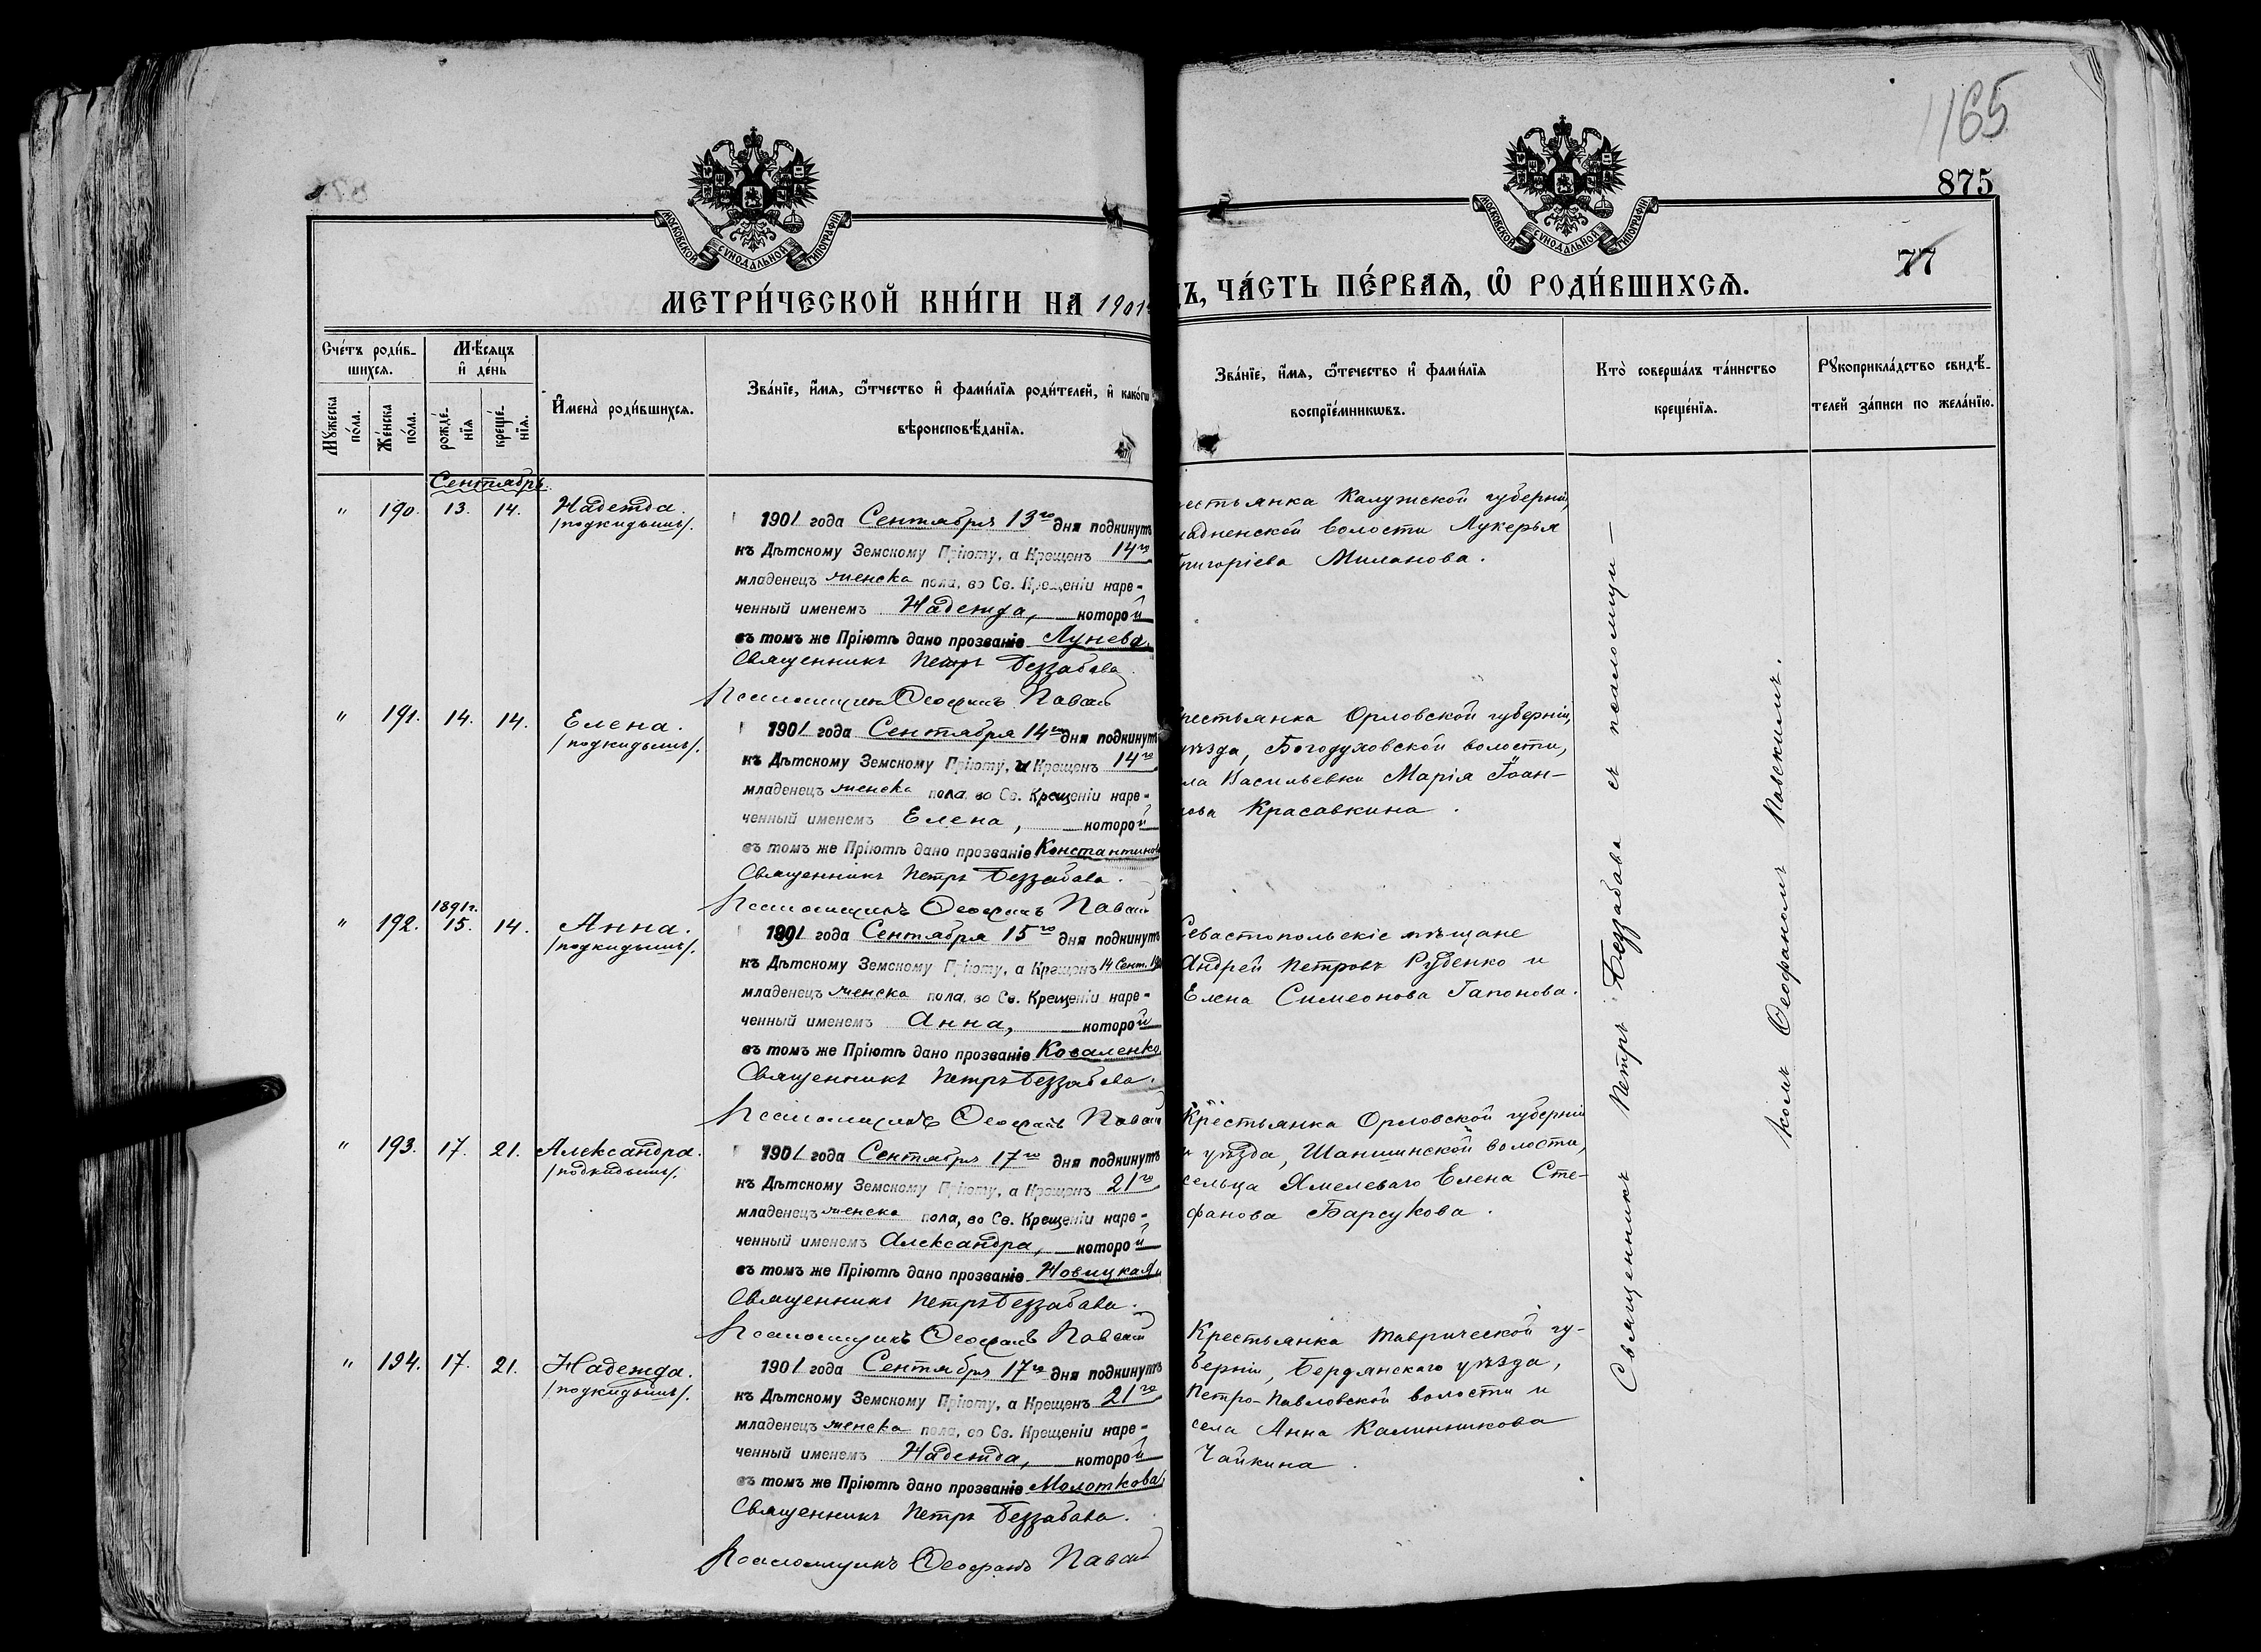 1165
875
77
МОСКОВСКОЙ СѴНОДАЛЬНОЙ ТИПОГРАФІИ
МОСКОВСКОЙ СѴНОДАЛЬНОЙ ТИПОГРАФІИ
МЕТРИ́ЧЕСКОЙ КНИ́ГИ НА 1901
Ъ, ЧА́СТЬ ПЕ́РВАѦ, Ѽ РОДИ́ВШИХСѦ.
Сче́тъ роди́в-
шихсѧ.
Мꙋжеска по́ла.
Же́нска по́ла.
Мѣ́сѧцъ и҆ де́нь
рожде́-нїѧ
креще́-нїѧ.
И҆мена̀ роди́вшихсѧ.
Зва́нїе, и҆́мѧ, ѻ҆́тчество и҆ фами́лїѧ роди́телей, и҆ како́гѡ
вѣроисповѣ́данїѧ.
Зва́нїе, и҆́мѧ, ѻ҆́течество и҆ фами́лїѧ
воспрїе́мникѡвъ.
Кто̀ соверша́лъ та́инство
креще́нїѧ.
Рꙋкоприкла́дство свидѣ́-
телей за́писи по жела́нїю.
Сентябрь
" 190. 13. 14. Надежда.
/подкидышъ/.
1901 года Сентября 13го дня подкинутъ
къ Дѣтскому Земскому Пріюту, а Крещенъ 14го
младенецъ женска пола, во Св. Крещеніи наре-
ченный именемъ Надежда, которой
въ томъ же Пріютѣ дано прозваніе Лунева.
Священникъ Петръ Беззабава
Псаломщикъ Ѳеофанъ Павск
естьянка Калужской губерніи,
днепской волости Лукерья
ригоріева Миланова.
" 191. 14. 14. Елена.
/подкидышъ/.
1901 года Сентября 14го дня подкинутъ
къ Дѣтскому Земскому Пріюту, и Крещенъ 14го
младенецъ женска пола, во Св. Крещеніи наре-
ченный именемъ Елена, которой
въ томъ же Пріютѣ дано прозваніе Константинова
Священникъ Петръ Беззабава.
Псаломщикъ Ѳеофанъ Павск
рестьянка Орловской губерніи,
уѣзда, Богодуховской волости,
ла Васильевки Марія Іоан-
нова Красавкина.
1891г.
" 192. 15. 14. Анна.
/подкидышъ/.
1891 года Сентября 15го дня подкинутъ
къ Дѣтскому Земскому Пріюту, а Крещенъ 14 Сент. 190
младенецъ женска пола, во Св. Крещеніи наре-
ченный именемъ Анна, которой
въ томъ же Пріютѣ дано прозваніе Коваленко
Священникъ Петръ Беззабава.
Псаломщикъ Ѳеофанъ Павск
Севастопольскіе мѣщане
Андрей Петровъ Рубенко и
Елена Симеонова Гапонова.
" 193. 17. 21. Александра.
/подкидышъ/.
1901 года Сентября 17го дня подкинутъ
къ Дѣтскому Земскому Пріюту, а Крещенъ 21го
младенецъ женска пола, во Св. Крещеніи наре-
ченный именемъ Александра, которой
въ томъ же Пріютѣ дано прозваніе Новицкая
Священникъ Петръ Беззабава.
Псаломщикъ Ѳеофанъ Павскій
Крестьянка Орловской губерніи
и уѣзда, Шаншинской волости,
сельца Хмелеваго Елена Сте-
фанова Барсукова.
" 194. 17. 21. Надежда.
/подкидышъ/.
1901 года Сентября 17го дня подкинутъ
къ Дѣтскому Земскому Пріюту, а Крещенъ 21го
младенецъ женска пола, во Св. Крещеніи наре-
ченный именемъ Надежда, которой
въ томъ же Пріютѣ дано прозваніе Молоткова
Священникъ Петръ Беззабава.
Псаломщикъ Ѳеофанъ Павск
Крестьянка Таврической гу-
берніи, Бердянскаго уѣзда,
Петро-Павловской волости и
села Анна Калинникова
Чайкина.
Священникъ Петръ Беззабава съ псаломщи-
комъ Ѳеофаномъ Павскимъ.